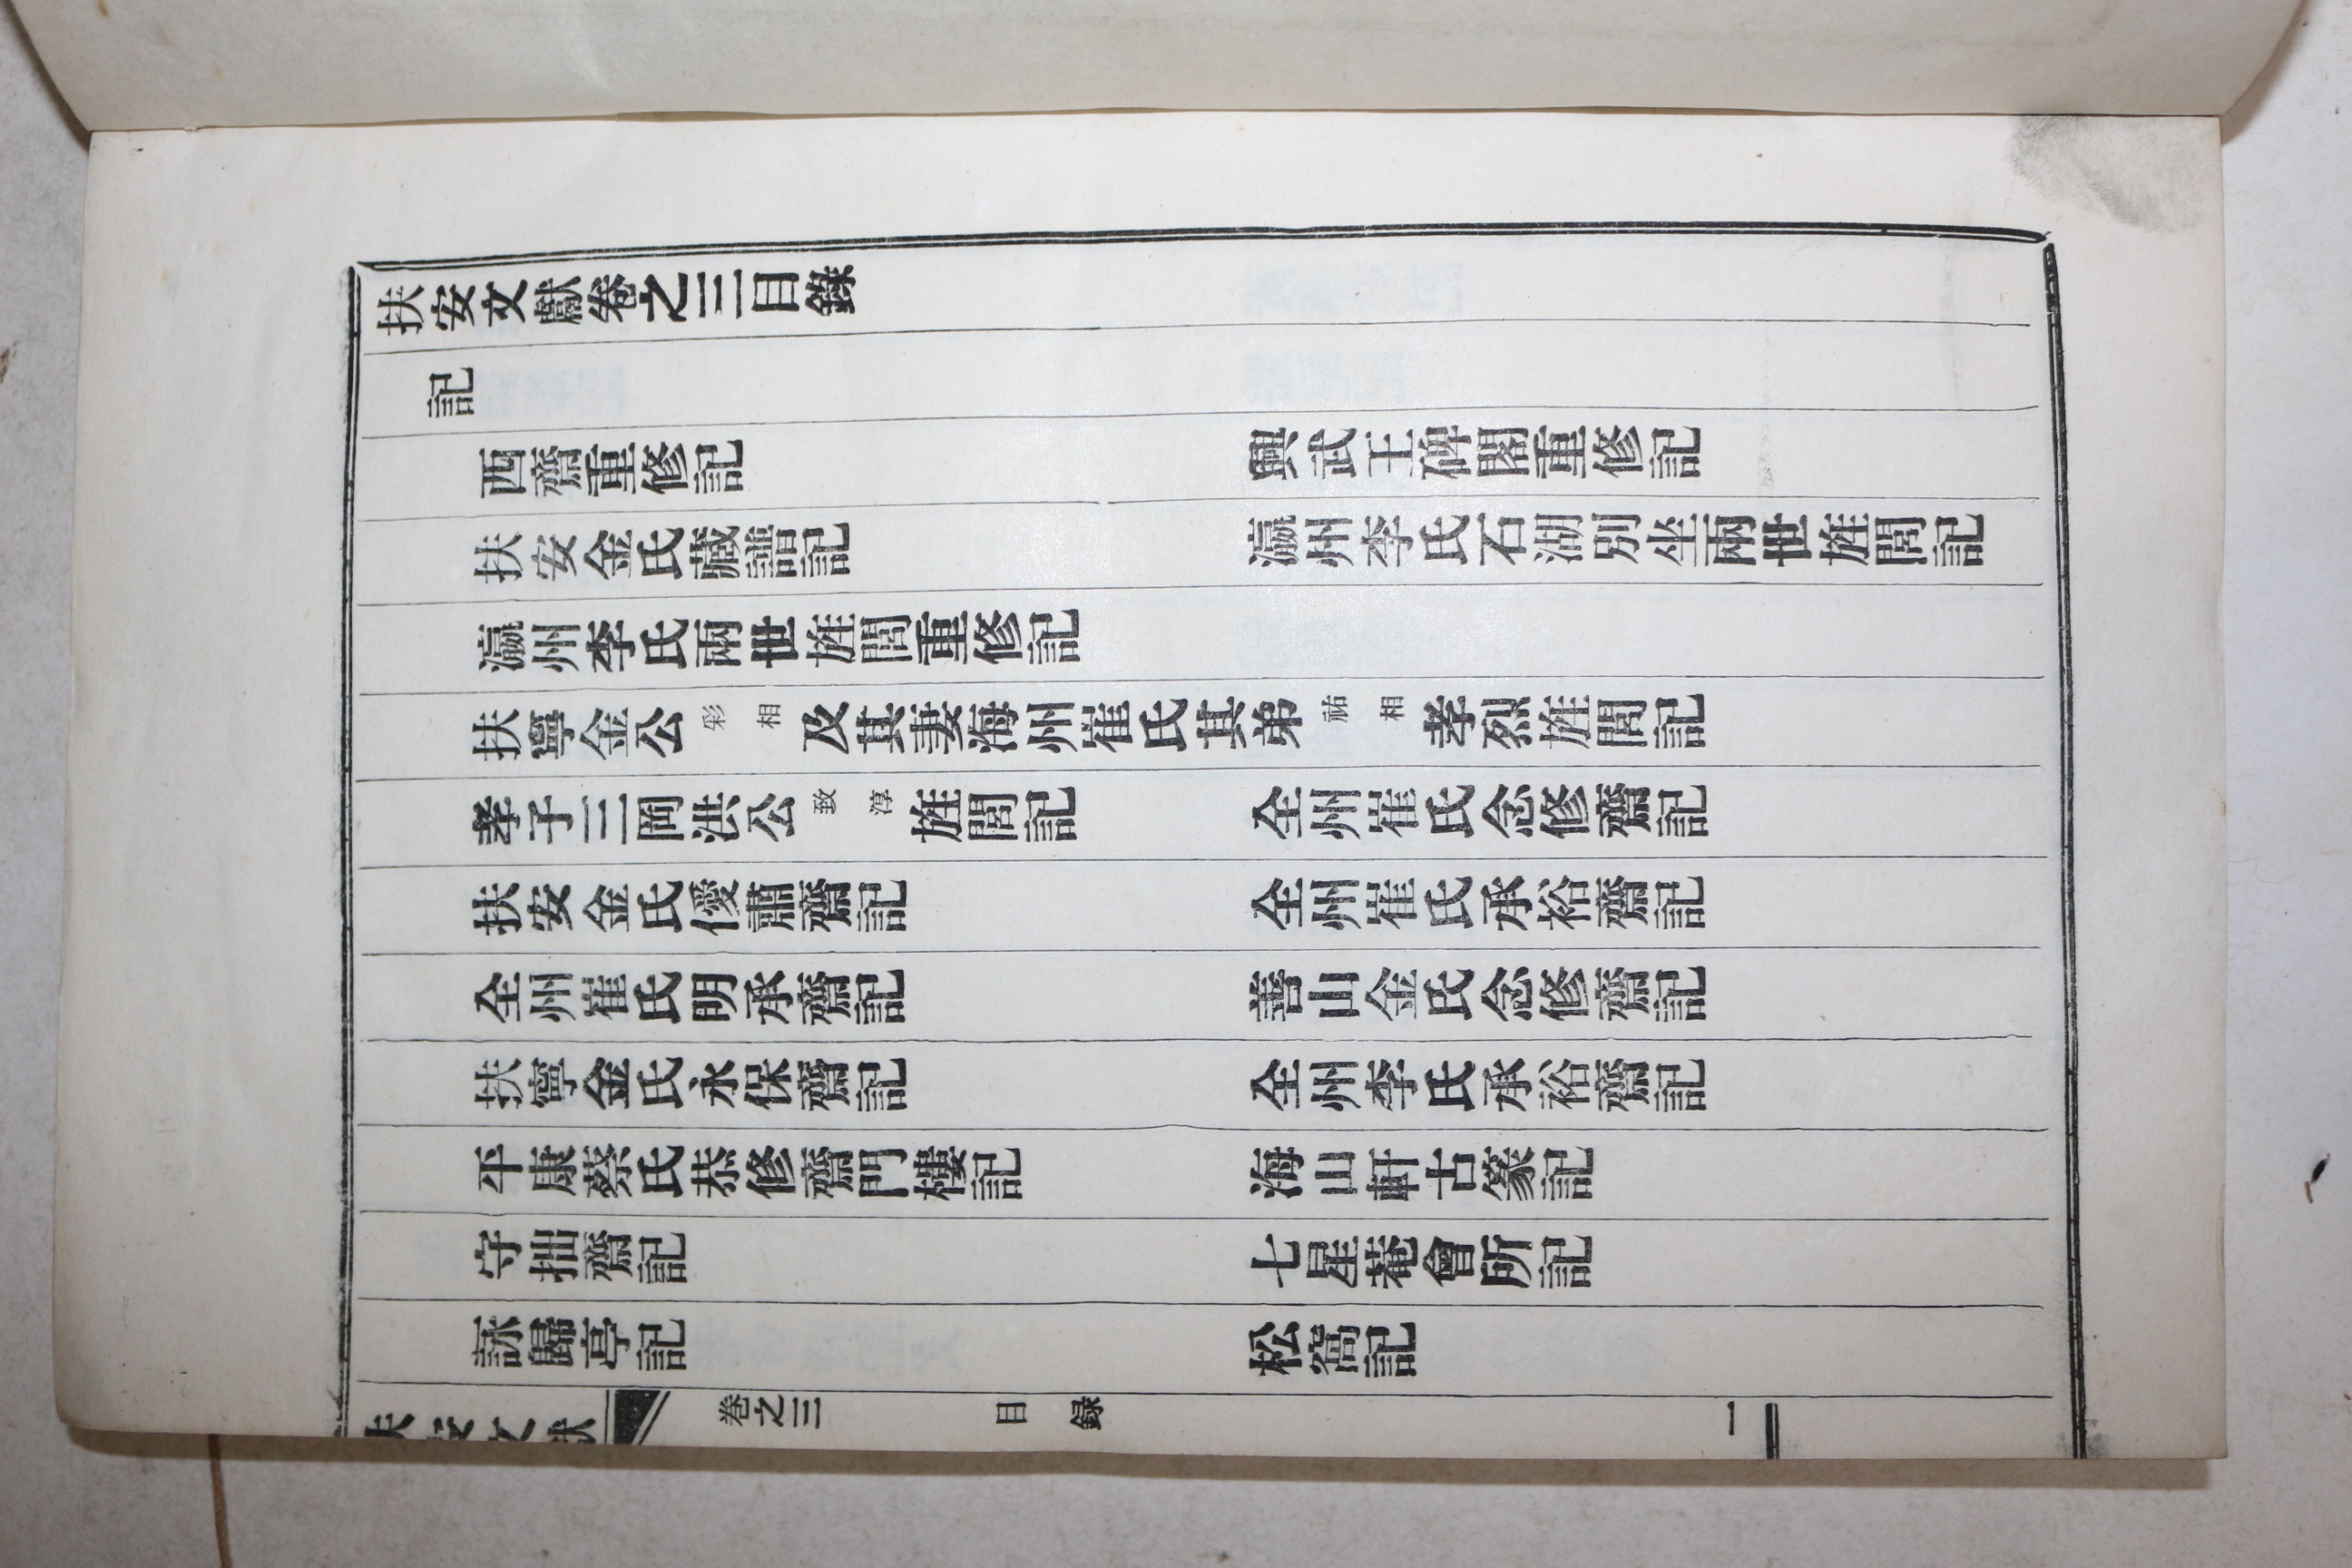 扶安文獻卷之三目錄
記
西齋重修記　興武王碑閣重修記
扶安金氏藏譜記　瀛州李氏石湖別坐兩世旌閭記
瀛州李氏兩世旌閭重修記
扶寧金公彩相及其妻海州崔氏其弟祐相孝烈旌閭記
孝子三岡洪公致淳旌閭記　全州崔氏念修齋記
扶安金氏僾肅齋記　全州崔氏承裕齋記
全州崔氏明承齋記　善山金氏念修齋記
扶寧金氏永保齋記　全州李氏承裕齋記
平康蔡氏恭修齋門樓記　海山軒古篆記
守拙齋記　七星菴會所記
詠歸亭記　松窩記
扶安文獻　卷之三　目録　一